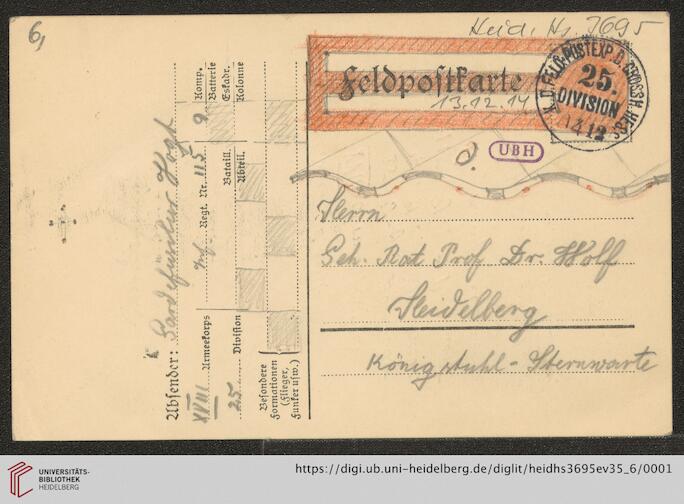 6,
Heid. Hs. 3695
Feldpostkarte
13.12.14
K. D. FELD-POSTEXP. D. GROSSH. HESS.
25.
DIVISION
14 12
UBH
Herrn
Geh. Rat Prof Dr. Wolf
Heidelberg
Königstuhl - Sternwarte
Absender: Gardefüsilier Vogt
XVIII Armeekorps Inf. Regt. Nr. 115 9 Komp.
Batterie
25. Division Bataill. Eskadr.
Abteil. Kolonne
Besondere
Formationen
(Flieger,
Funker usw.)
UNIVERSITÄTS-
BIBLIOTHEK
HEIDELBERG
https://digi.ub.uni-heidelberg.de/diglit/heidhs3695ev35_6/0001